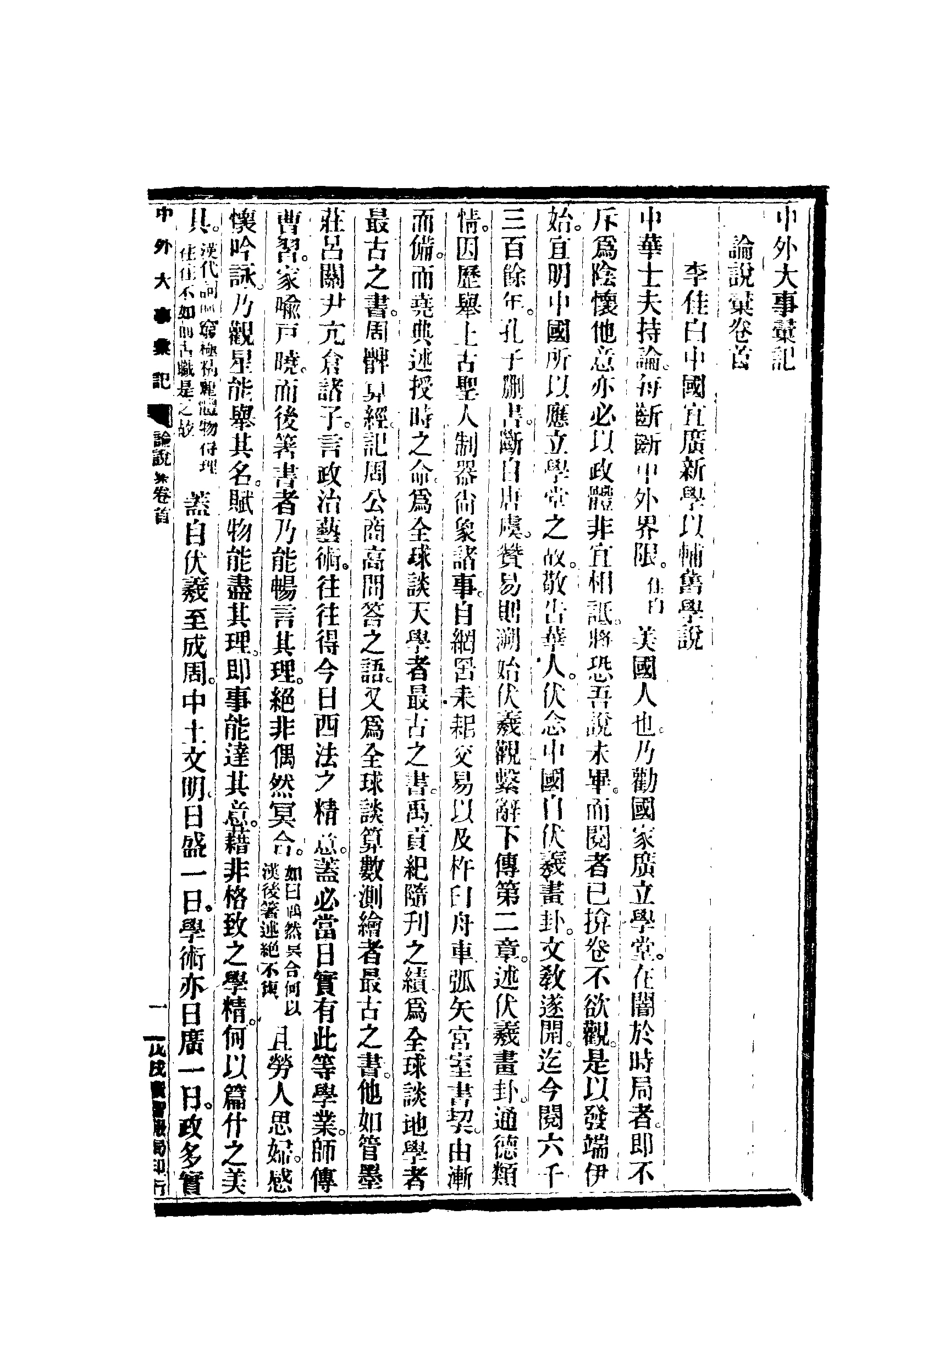 中外大事彙記
論說彙卷首
李佳白中國宜廣新學以輔舊學說
中華士夫持論。每斷斷中外界限。佳白美國人也。乃勸國家廣立學堂。在闇於時局者。即不
斥爲陰懷他意。亦必以政體非宜相詆。將恐吾說未畢。而閱者已揜卷不欲觀。是以發端伊
始。宜明中國所以應立學堂之故。敬告華人。伏念中國自伏羲畫卦。文敎遂開。迄今閱六千
三百餘年。孔子刪書。斷自唐虞。贊易則溯始伏羲。觀繫辭下傳第二章。述伏羲畫卦。通德類
情。因歷舉上古聖人制器尙象諸事。自網罟耒耜交易以及杵臼舟車弧矢宮室書契。由漸
而備。而堯典述授時之命。爲全球談天學者最古之書。禹貢紀隨刊之績。爲全球談地學者
最古之書。周髀算經。記周公商高問答之語。又爲全球談算數測繪者最古之書。他如管墨
莊呂關尹亢倉諸子。言政治藝術。往往得今日西法之精意。蓋必當日實有此等學業。師傳
曹習。家喻戶曉。而後箸書者乃能暢言其理。絕非偶然冥合。如曰偶然冥合何以
漢後箸述絕不概
且勞人思婦。感
懷吟詠。乃觀星能舉其名。賦物能盡其理。即事能達其意。藉非格致之學精。何以篇什之美
具。漢代詞賦窮極精麗體物得理
往往不如前古職是之故
蓋自伏羲至成周。中土文明。日盛一日。學術亦日廣一日。政多實
中外大事彙記
論說彙卷首
一
戊戌廣智報局印行